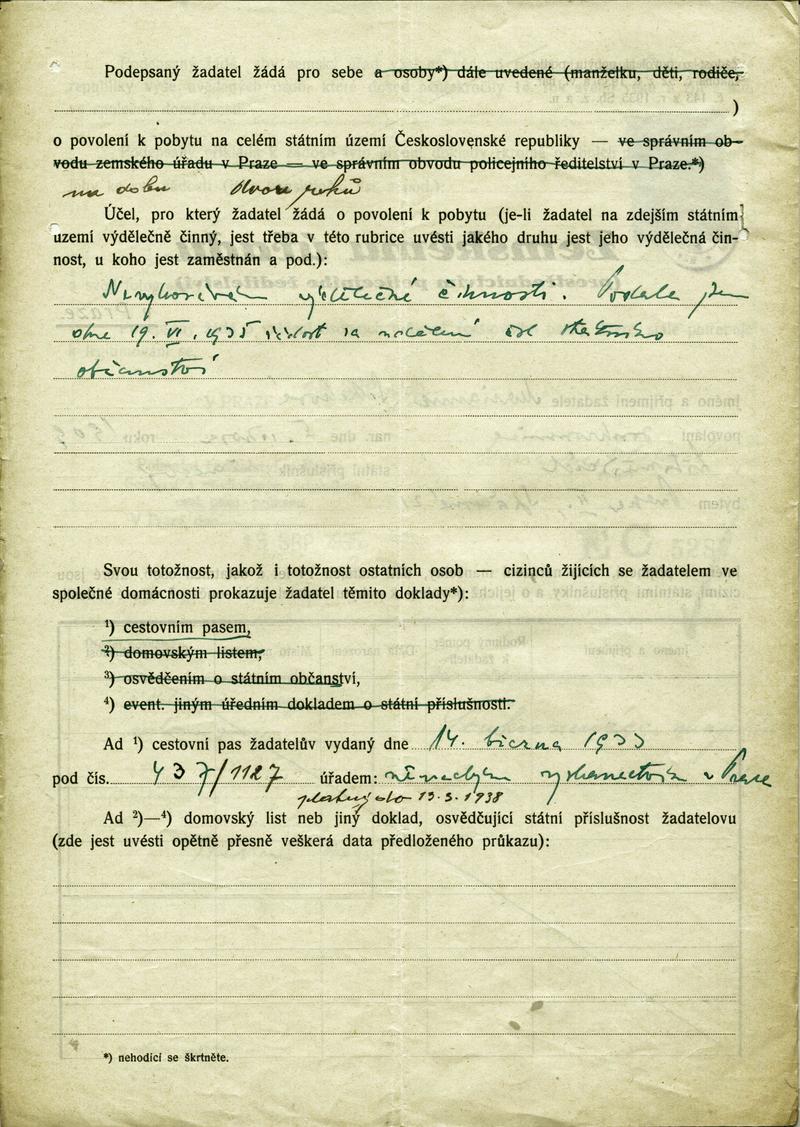 Podepsaný žadatel žádá pro sebe a osoby*) dále uvedené (manželku, děti, rodiče,
)
o povolení k pobytu na celém státním území Československé republiky — ve správním ob-
vodu zemského úřadu v Praze — ve správním obvodu policejního ředitelství v Praze.*)
na dobu dvou roků
Účel, pro který žadatel žádá o povolení k pobytu (je-li žadatel na zdejším státním
území výdělečně činný, jest třeba v této rubrice uvésti jakého druhu jest jeho výdělečná čin-
nost, u koho jest zaměstnán a pod.):
Nevykonávám výdělečné činnosti. Podala jsem
dne 19. VI. 1935 žádost za udělení čsl státního
občanství
Svou totožnost, jakož i totožnost ostatních osob — cizinců žijících se žadatelem ve
společné domácnosti prokazuje žadatel těmito doklady*):
¹) cestovním pasem,
²) domovským listem,
³) osvědčením o státním občanství,
⁴) event. jiným úředním dokladem o státní příslušnosti.
Ad ¹) cestovní pas žadatelův vydaný dne 14. března 1933
pod čís. 437/1127 úřadem: německým vyslanectvím v Praze
platný do 13.3.1938
Ad ²)—⁴) domovský list neb jiný doklad, osvědčující státní příslušnost žadatelovu
(zde jest uvésti opětně přesně veškerá data předloženého průkazu):
*) nehodící se škrtněte.